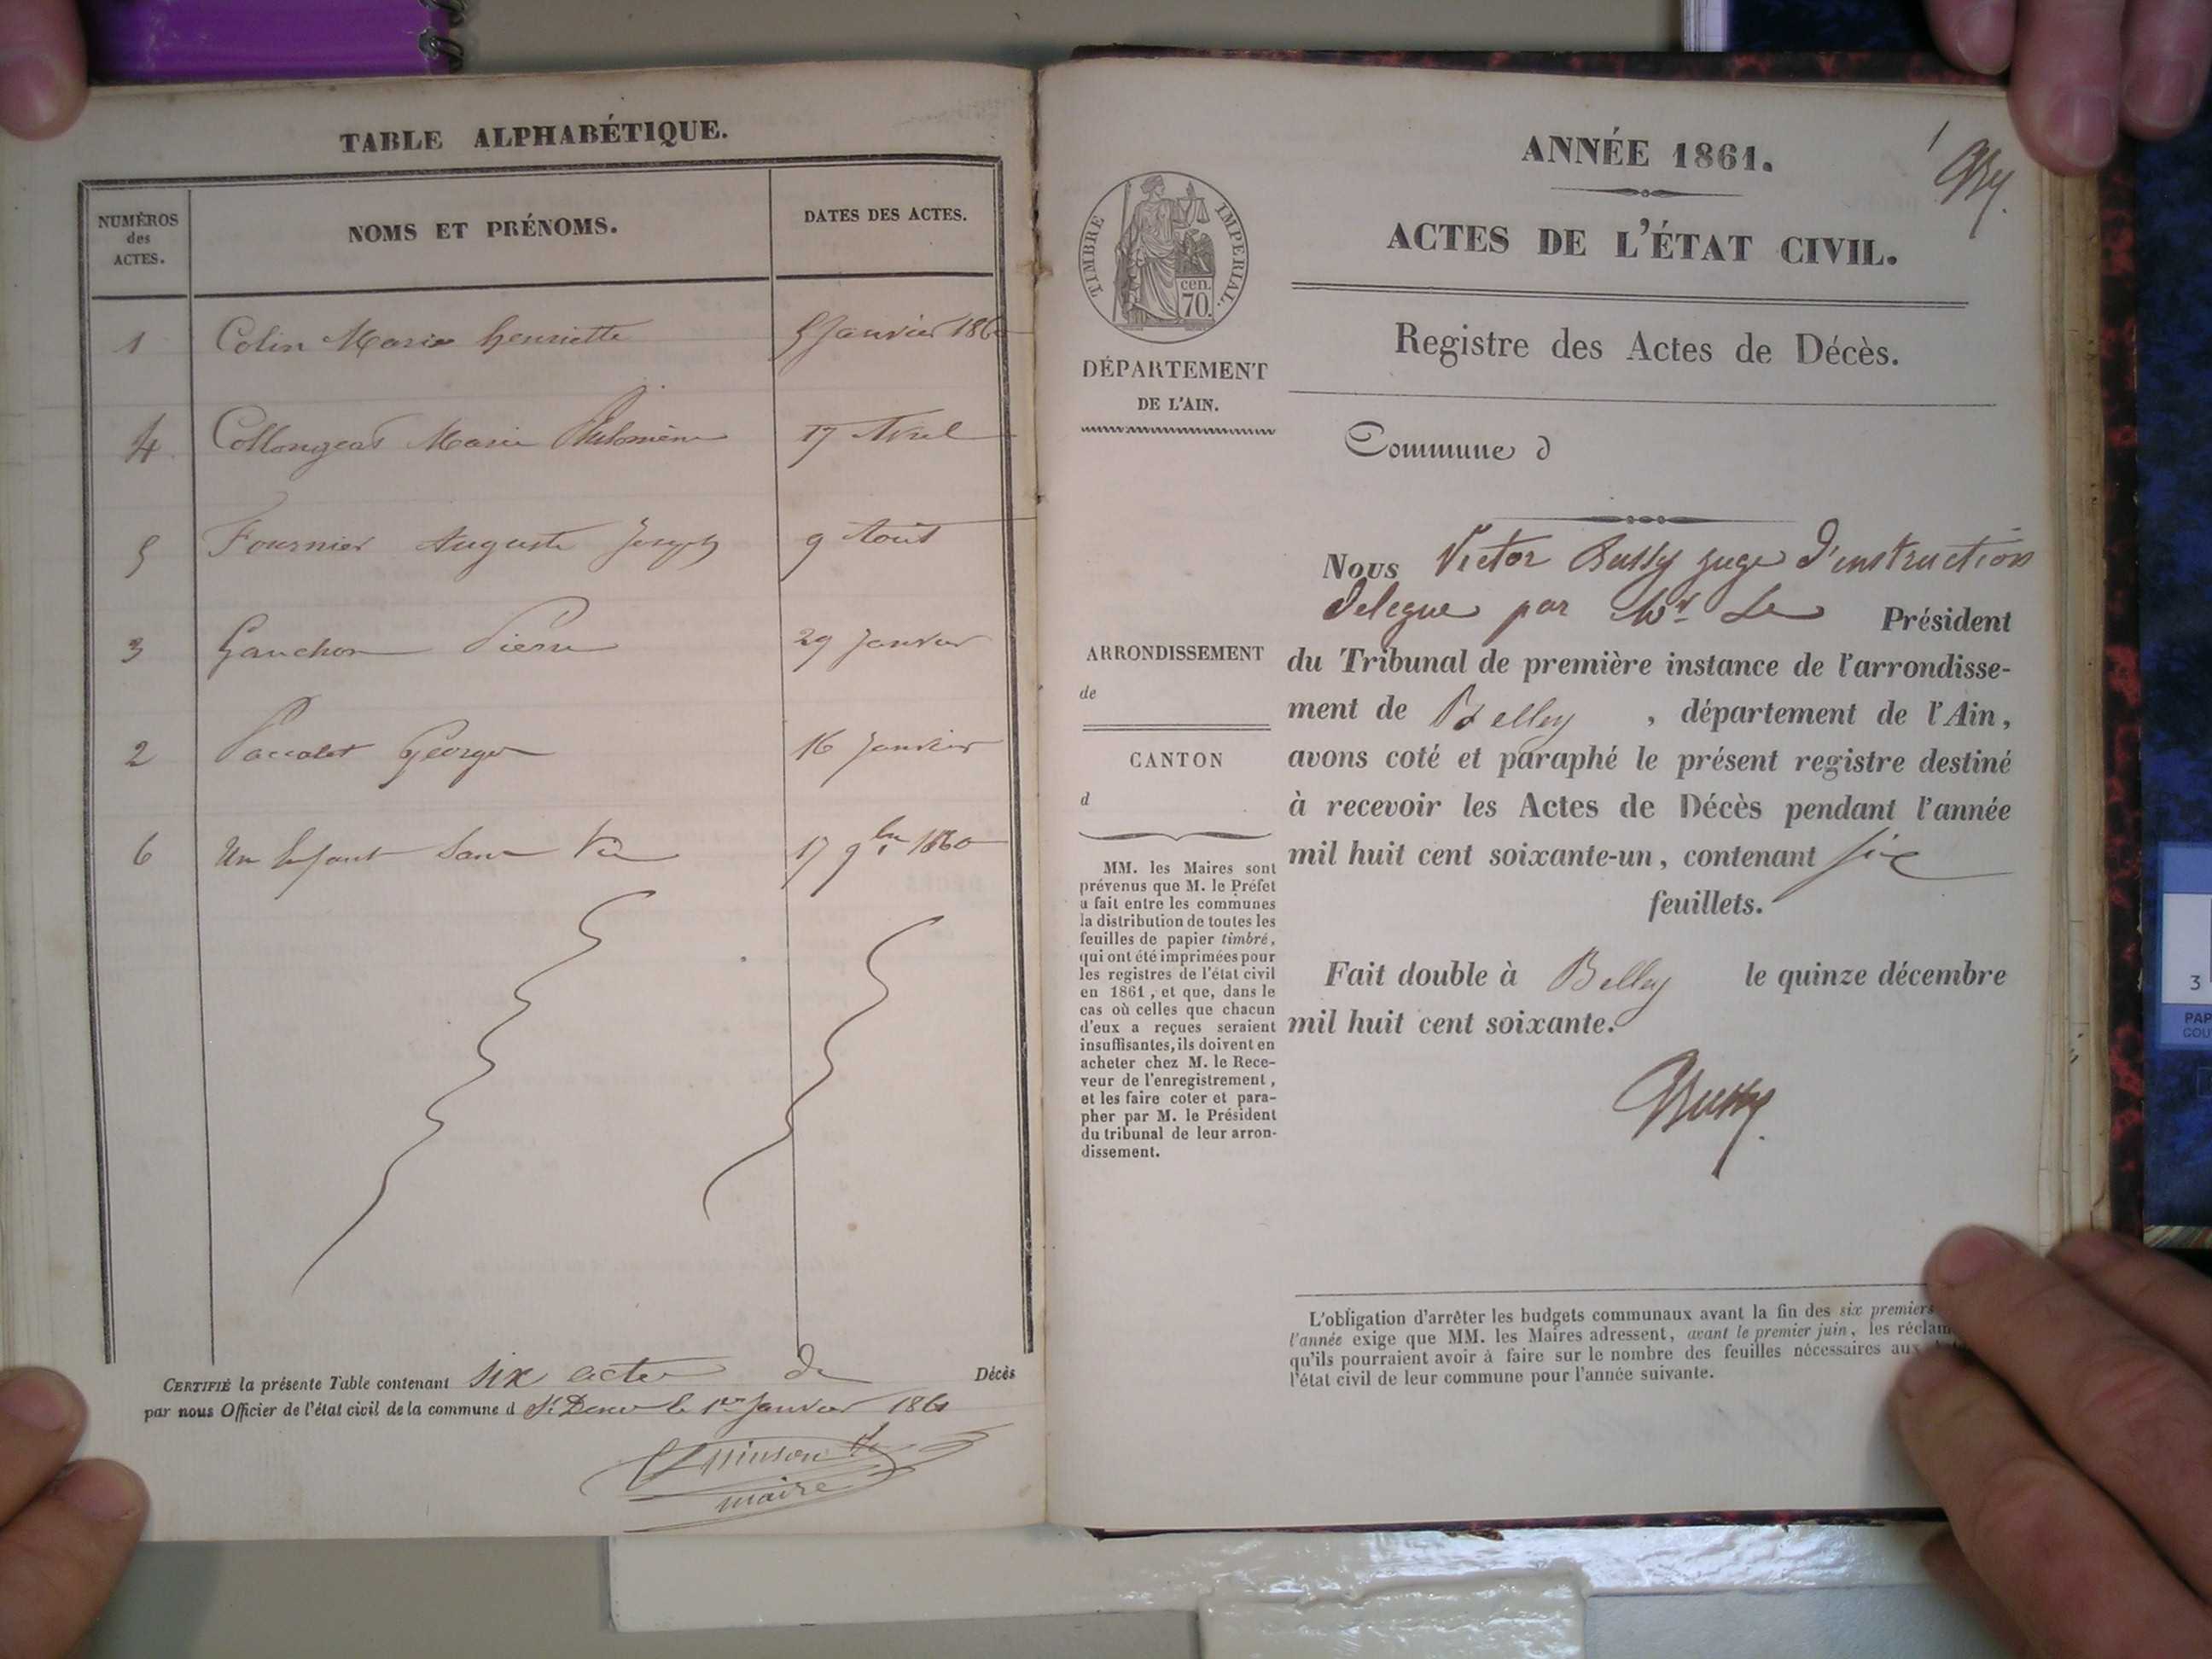 TABLE ALPHABÉTIQUE.
NUMÉROS
des
ACTES.
NOMS ET PRÉNOMS.
DATES DES ACTES.
1 Colin Marie henriette 5 Janvier 1860
4 Collongeat Marie Philomène 17 Avril
5 Fournier Auguste Joseph 9 Aout
3 Gauchon Pierre 29 Janvier
2 Paccalet George 16 Janvier
6 Un Enfant Sans Vie 17 9bre 1860
CERTIFIÉ la présente Table contenant six actes de Décès
par nous Officier de l'état civil de la commune d St Denis le 1er Janvier 1861
maire
1
ANNÉE 1861.
ACTES DE L'ÉTAT CIVIL.
Registre des Actes de Décès.
TIMBRE IMPERIAL.
cen.
70.
DÉPARTEMENT
DE L'AIN.
Commune d
Nous Victor Bussy juge d'instruction
délégué par Mr Le Président
du Tribunal de première instance de l'arrondisse-
ment de Belley , département de l'Ain,
avons coté et paraphé le présent registre destiné
à recevoir les Actes de Décès pendant l'année
mil huit cent soixante-un, contenant six
feuillets.
Fait double à Belley le quinze décembre
mil huit cent soixante.
Bussy
ARRONDISSEMENT
de
CANTON
d
MM. les Maires sont
prévenus que M. le Préfet
a fait entre les communes
la distribution de toutes les
feuilles de papier timbré,
qui ont été imprimées pour
les registres de l'état civil
en 1861, et que, dans le
cas où celles que chacun
d'eux a reçues seraient
insuffisantes, ils doivent en
acheter chez M. le Rece-
veur de l'enregistrement,
et les faire coter et para-
pher par M. le Président
du tribunal de leur arron-
dissement.
L'obligation d'arrêter les budgets communaux avant la fin des six premiers
l'année exige que MM. les Maires adressent, avant le premier juin, les
qu'ils pourraient avoir à faire sur le nombre des feuilles nécessaires aux
l'état civil de leur commune pour l'année suivante.
3